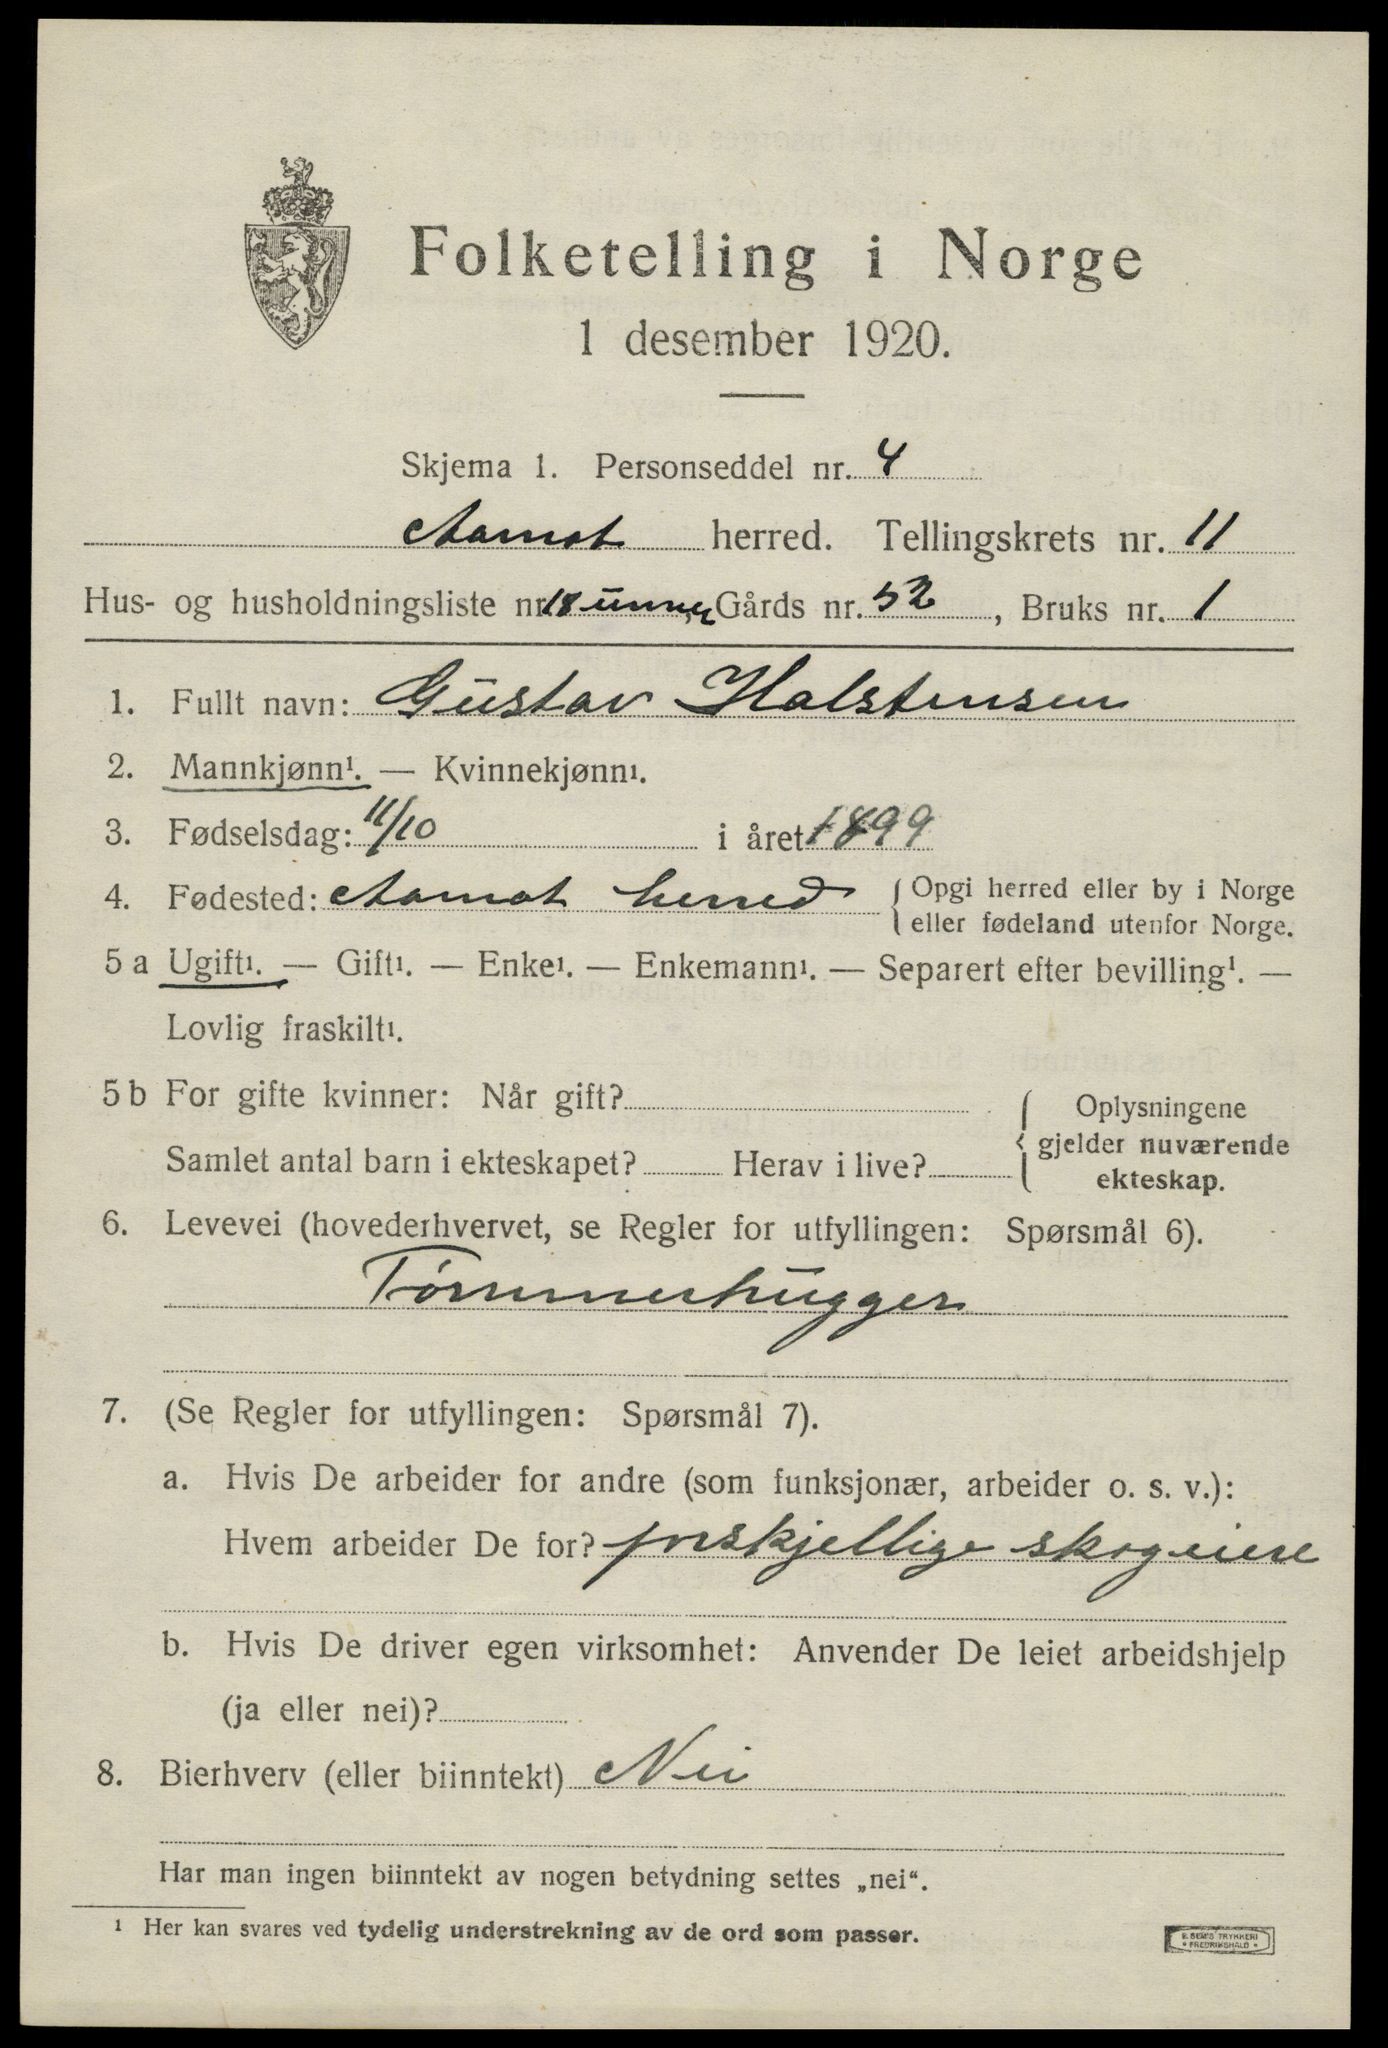 Folketelling i Norge
1 desember 1920.
Skjema 1. Personseddel nr. 4
Aamot herred. Tellingskrets nr. 11
Hus- og husholdningsliste nr. 18 Gårds nr. 52, Bruks nr. 1
1. Fullt navn: Gustav Halstensen
2. Mannkjønn¹. — Kvinnekjønn¹.
3. Fødselsdag: 11/10 i året 1899
4. Fødested: Aamot herred { Opgi herred eller by i Norge
eller fødeland utenfor Norge.
5 a Ugift¹. — Gift¹. — Enke¹. — Enkemann¹. — Separert efter bevilling¹. —
Lovlig fraskilt¹.
5 b For gifte kvinner: Når gift? { Oplysningene
gjelder nuværende
Samlet antal barn i ekteskapet? Herav i live?
ekteskap.
6. Levevei (hovederhvervet, se Regler for utfyllingen: Spørsmål 6).
Tømmerhugger
7. (Se Regler for utfyllingen: Spørsmål 7).
a. Hvis De arbeider for andre (som funksjonær, arbeider o. s. v.):
Hvem arbeider De for? forskjellige skogeiere
b. Hvis De driver egen virksomhet: Anvender De leiet arbeidshjelp
(ja eller nei)?
8. Bierhverv (eller biinntekt) Nei
Har man ingen biinntekt av nogen betydning settes „nei“.
¹ Her kan svares ved tydelig understrekning av de ord som passer.
E. SEM'S TRYKKERI
• FREDRIKSHALD •